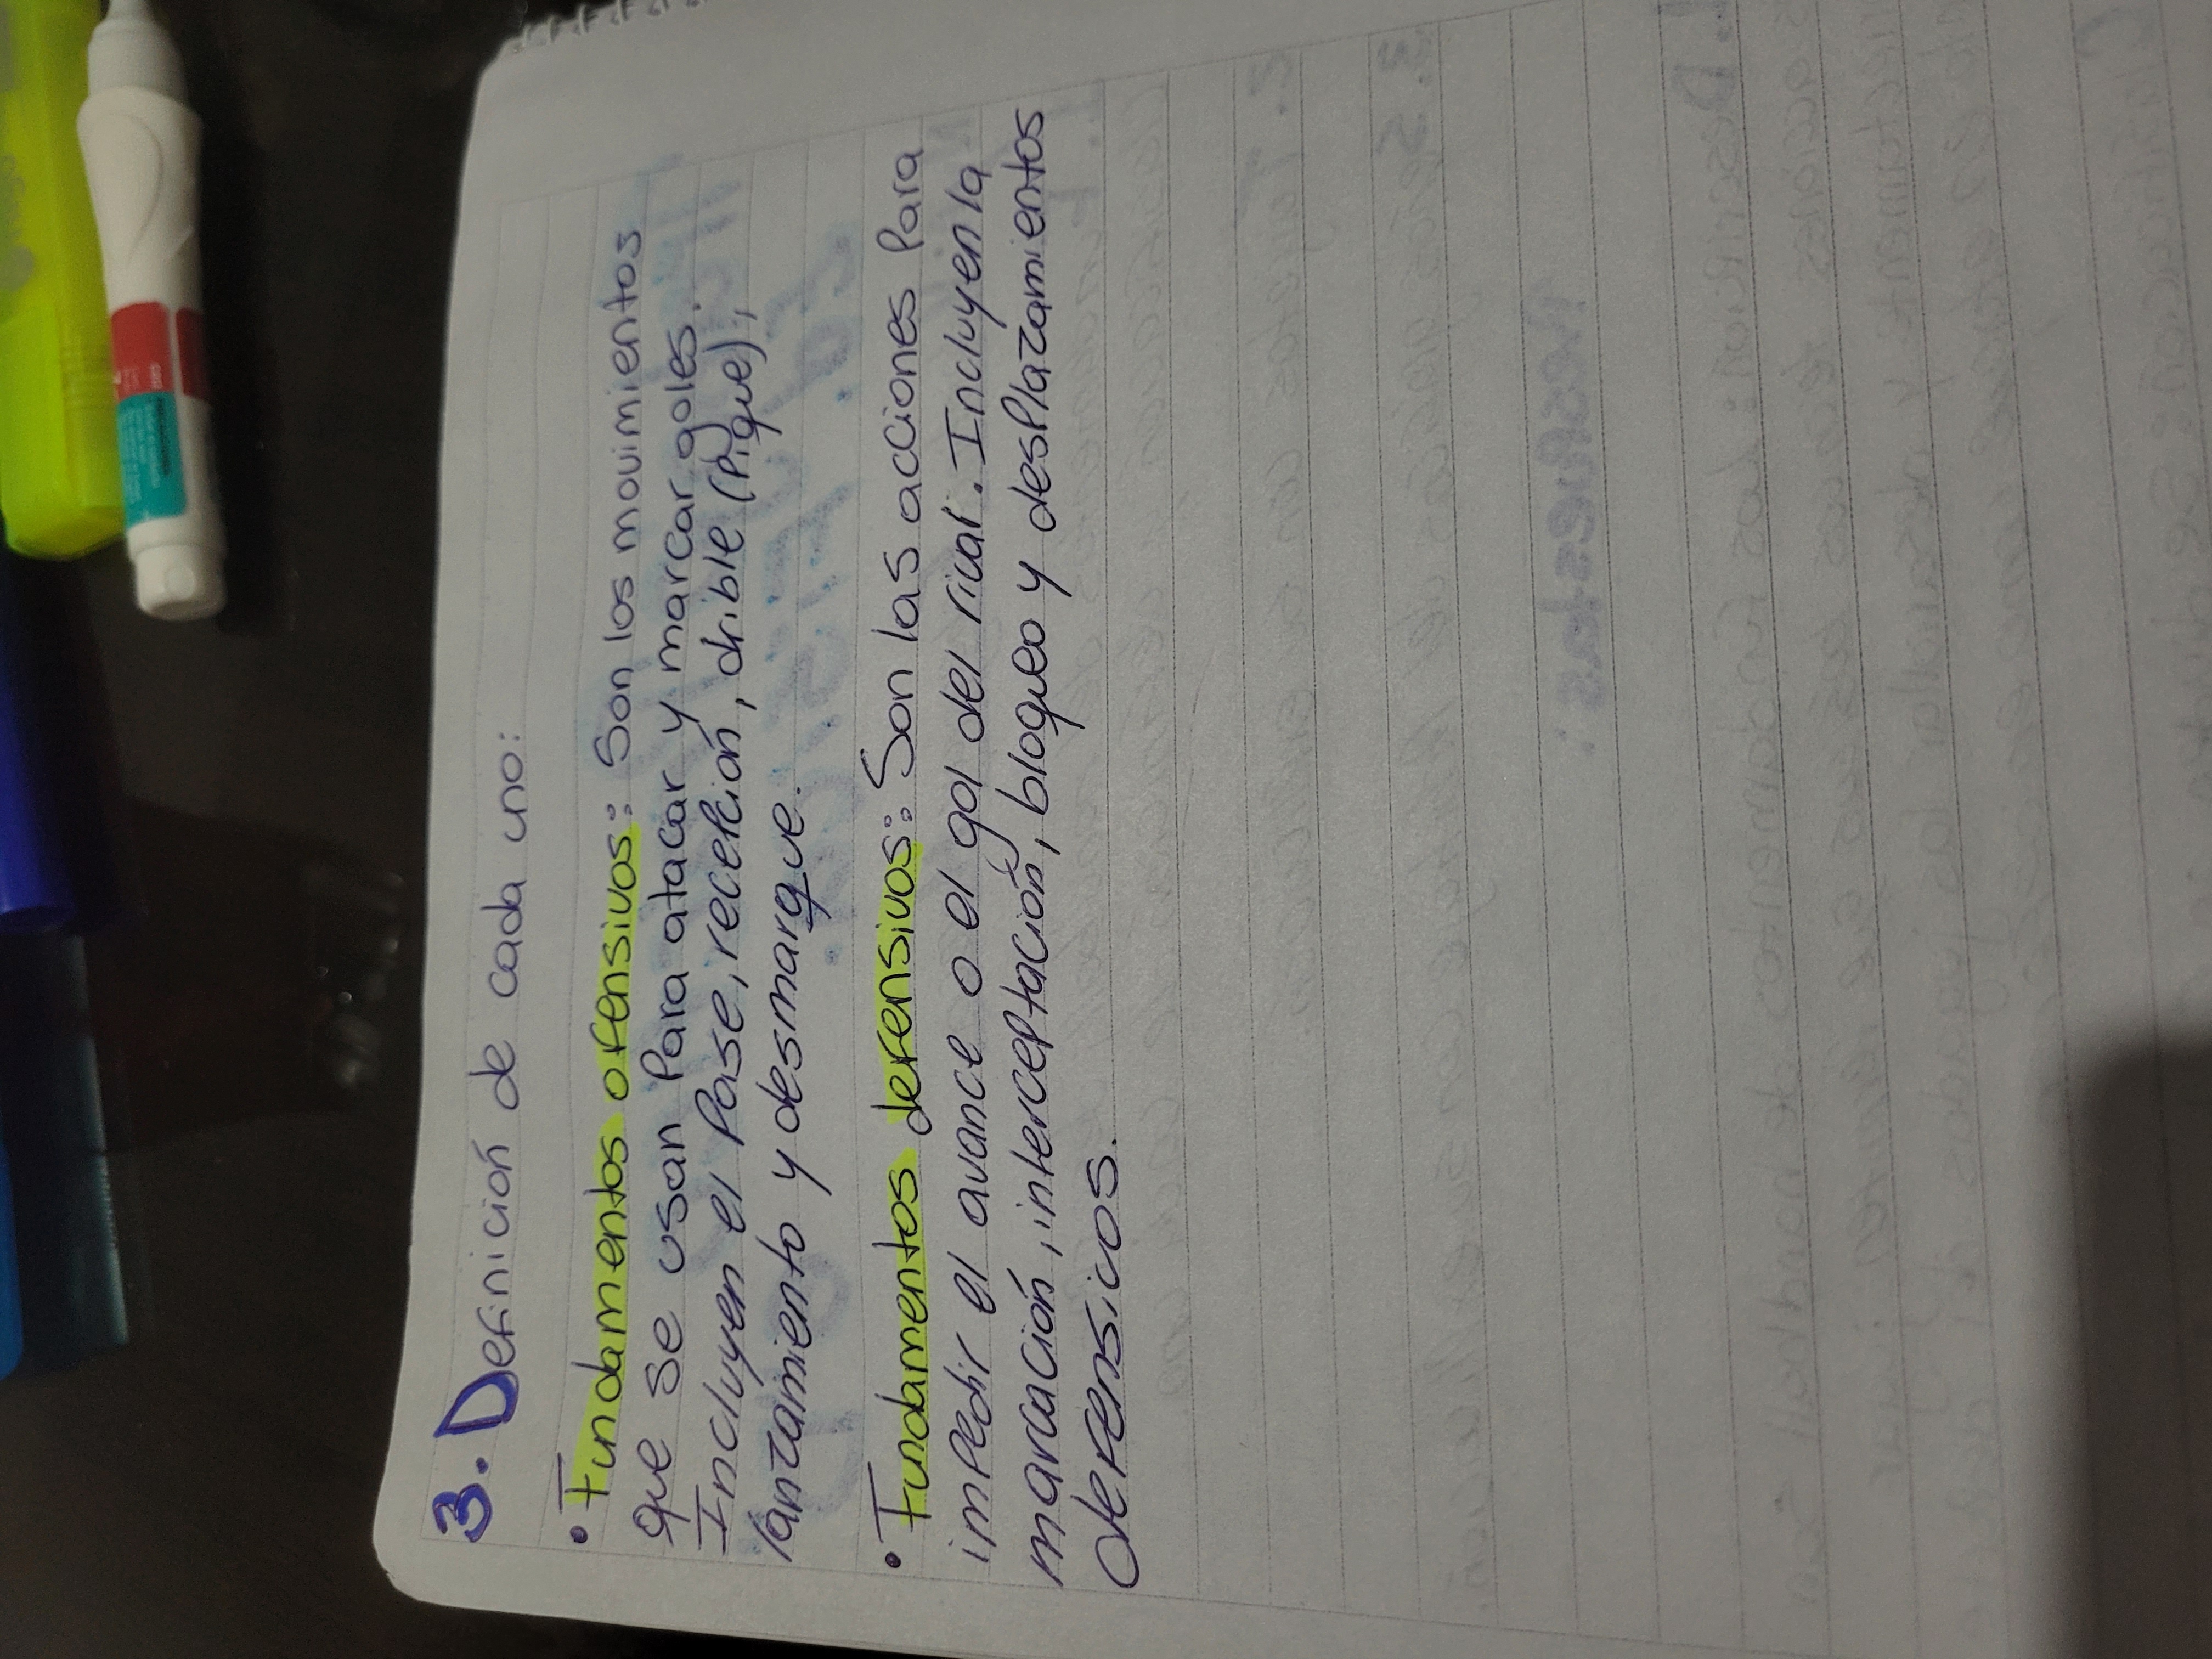 3. Definición de cada uno:
• Fundamentos ofensivos: Son los movimientos
que se usan para atacar y marcar goles.
Incluyen el pase, recepción, drible (pique),
lanzamiento y desmarque.
• Fundamentos defensivos: Son las acciones para
impedir el avance o el gol del rival. Incluyen la
marcación, interceptación, bloqueo y desplazamientos
defensivos.